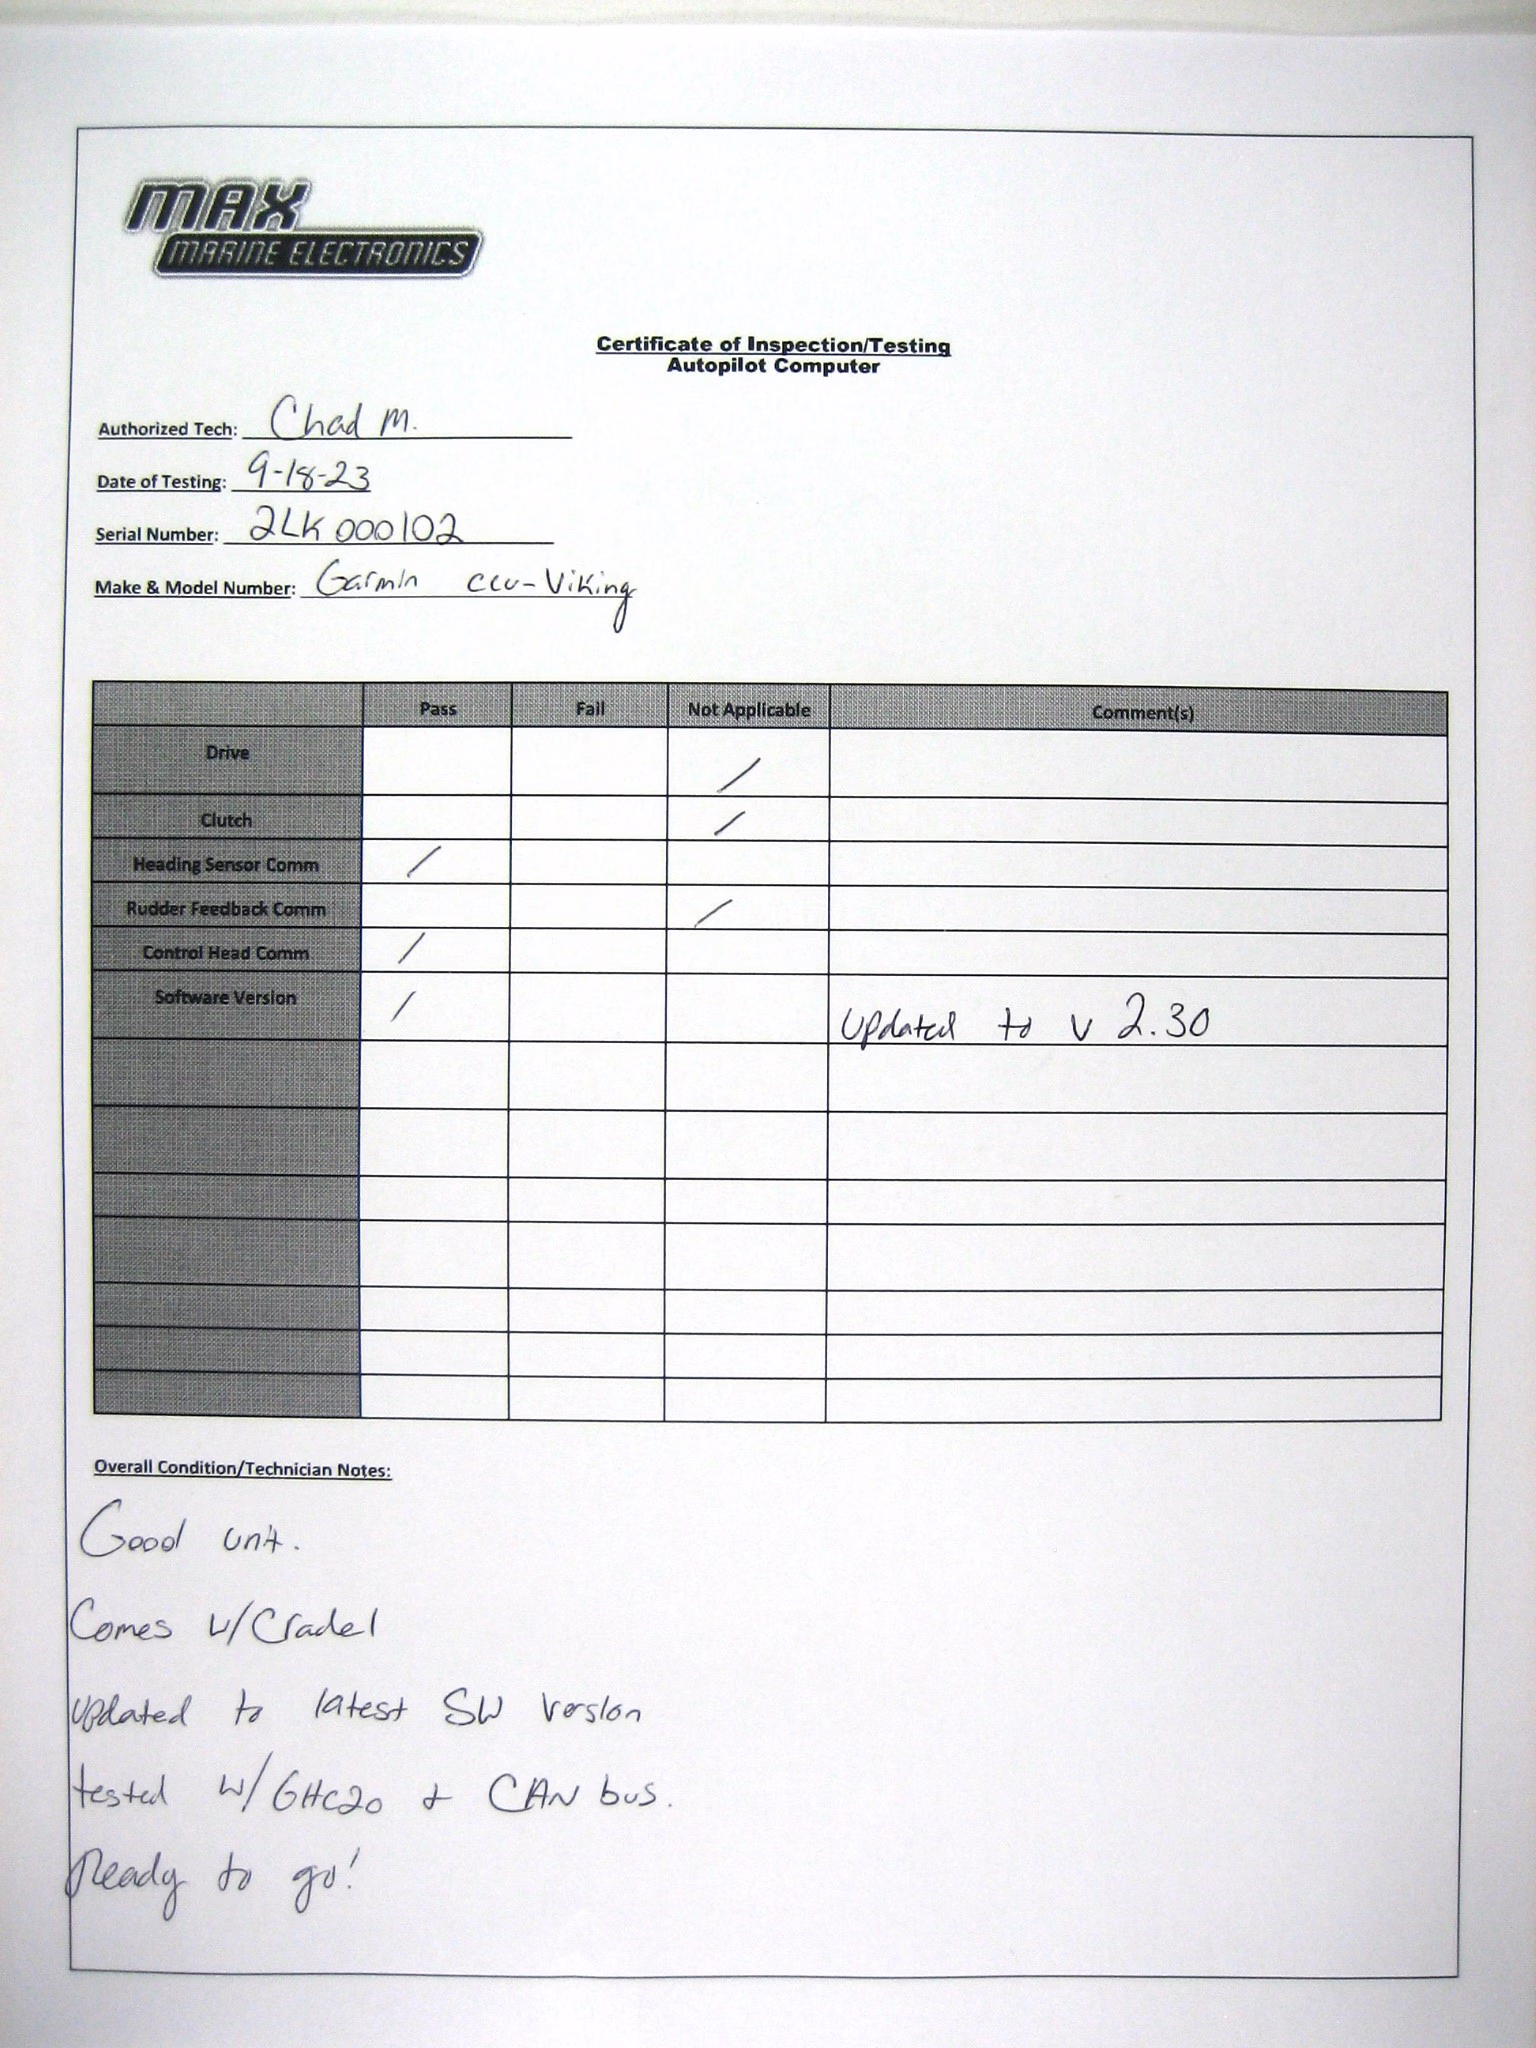 MAX
MARINE ELECTRONICS
Certificate of Inspection/Testing
Autopilot Computer
Authorized Tech: Chad M.
Date of Testing: 9-18-23
Serial Number: 2LK000102
Make & Model Number: Garmin CCU-Viking
Pass Fail Not Applicable Comment(s)
Drive /
Clutch /
Heading Sensor Comm /
Rudder Feedback Comm /
Control Head Comm /
Software Version / Updated to v 2.30
Overall Condition/Technician Notes:
Good unit.
Comes w/Cradel
updated to latest SW version
tested w/GHC20 & CAN bus.
Ready to go!